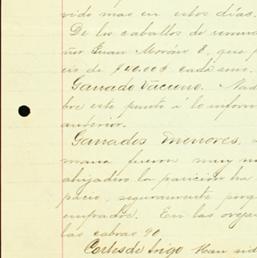 vido mas en estos días.
De los caballos de remu
ñor Juan Morán 8, que p
cio de $40.00 cada uno.
Ganado Vacuno. Nad
bre este punto á lo inform
anterior.
Ganados menores.
mana fueron muy
ahijadero la parición ha
pacio, seguramente porq
emprados. En las oveja
las cabras 90.
Cortes de trigo Han sid